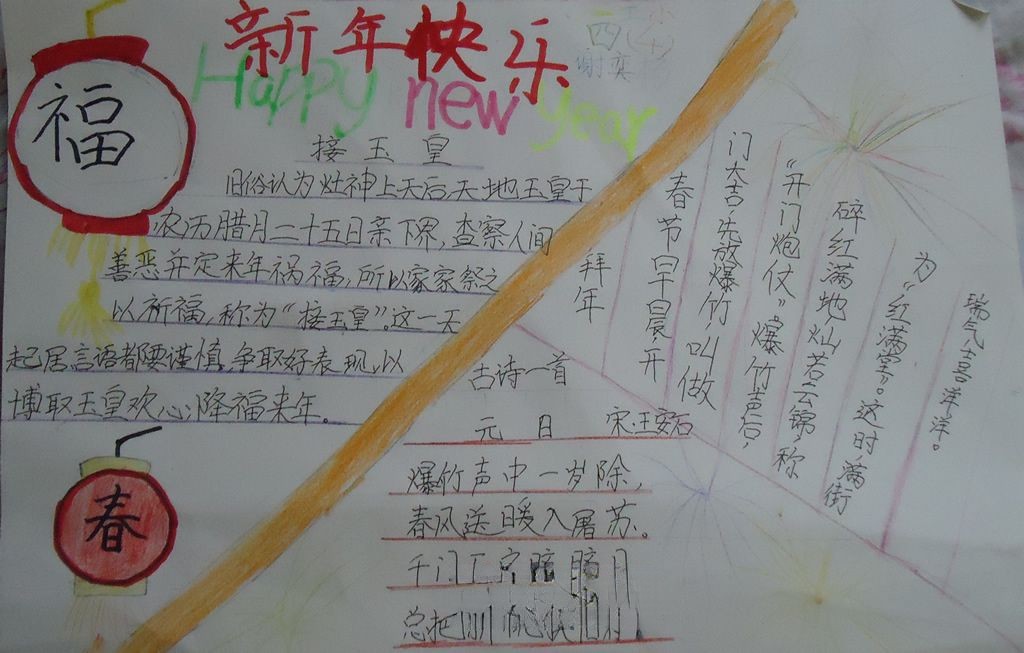 新年快乐
Happy new year
福
接玉皇
旧俗认为灶神上天后,天地玉皇于
农历腊月二十五日亲下界,查察人间
善恶并定来年祸福,所以家家祭之
以祈福,称为“接玉皇”。这一天
起居言语都要谨慎,争取好表现,以
博取玉皇欢心,降福来年。
春
四(七)
谢奕
拜年
春节早晨,开
门大吉,先放爆竹,叫做
“开门炮仗”。爆竹声后,
碎红满地灿若云锦,称
为“红满堂”。这时,满街
瑞气,喜洋洋。
古诗一首
元日 宋:王安石
爆竹声中一岁除,
春风送暖入屠苏。
千门
总把